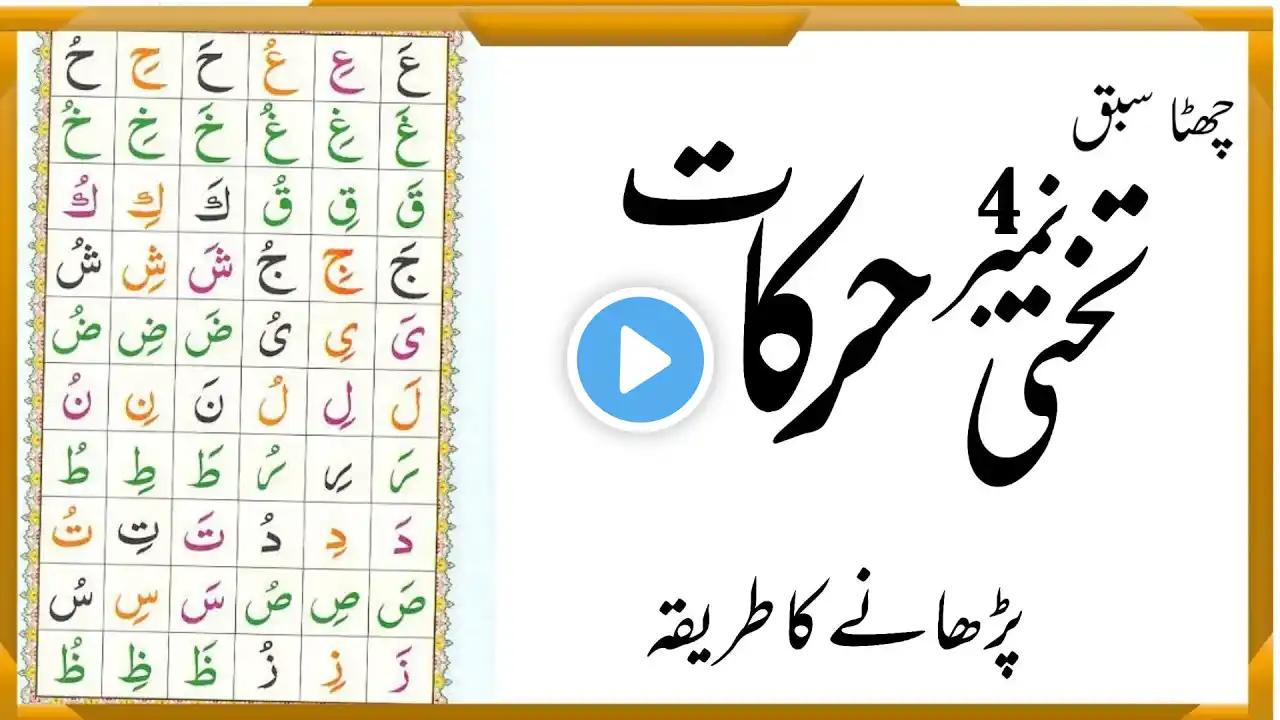 چھٹا سبق
تختی نمبر 4 حرکات
پڑھانے کا طریقہ
عَ عِ عُ حَ حِ حُ
غَ غِ غُ خَ خِ خُ
قَ قِ قُ كَ كِ كُ
جَ جِ جُ شَ شِ شُ
یَ یِ یُ ضَ ضِ ضُ
لَ لِ لُ نَ نِ نُ
رَ رِ رُ طَ طِ طُ
دَ دِ دُ تَ تِ تُ
صَ صِ صُ سَ سِ سُ
زَ زِ زُ ظَ ظِ ظُ